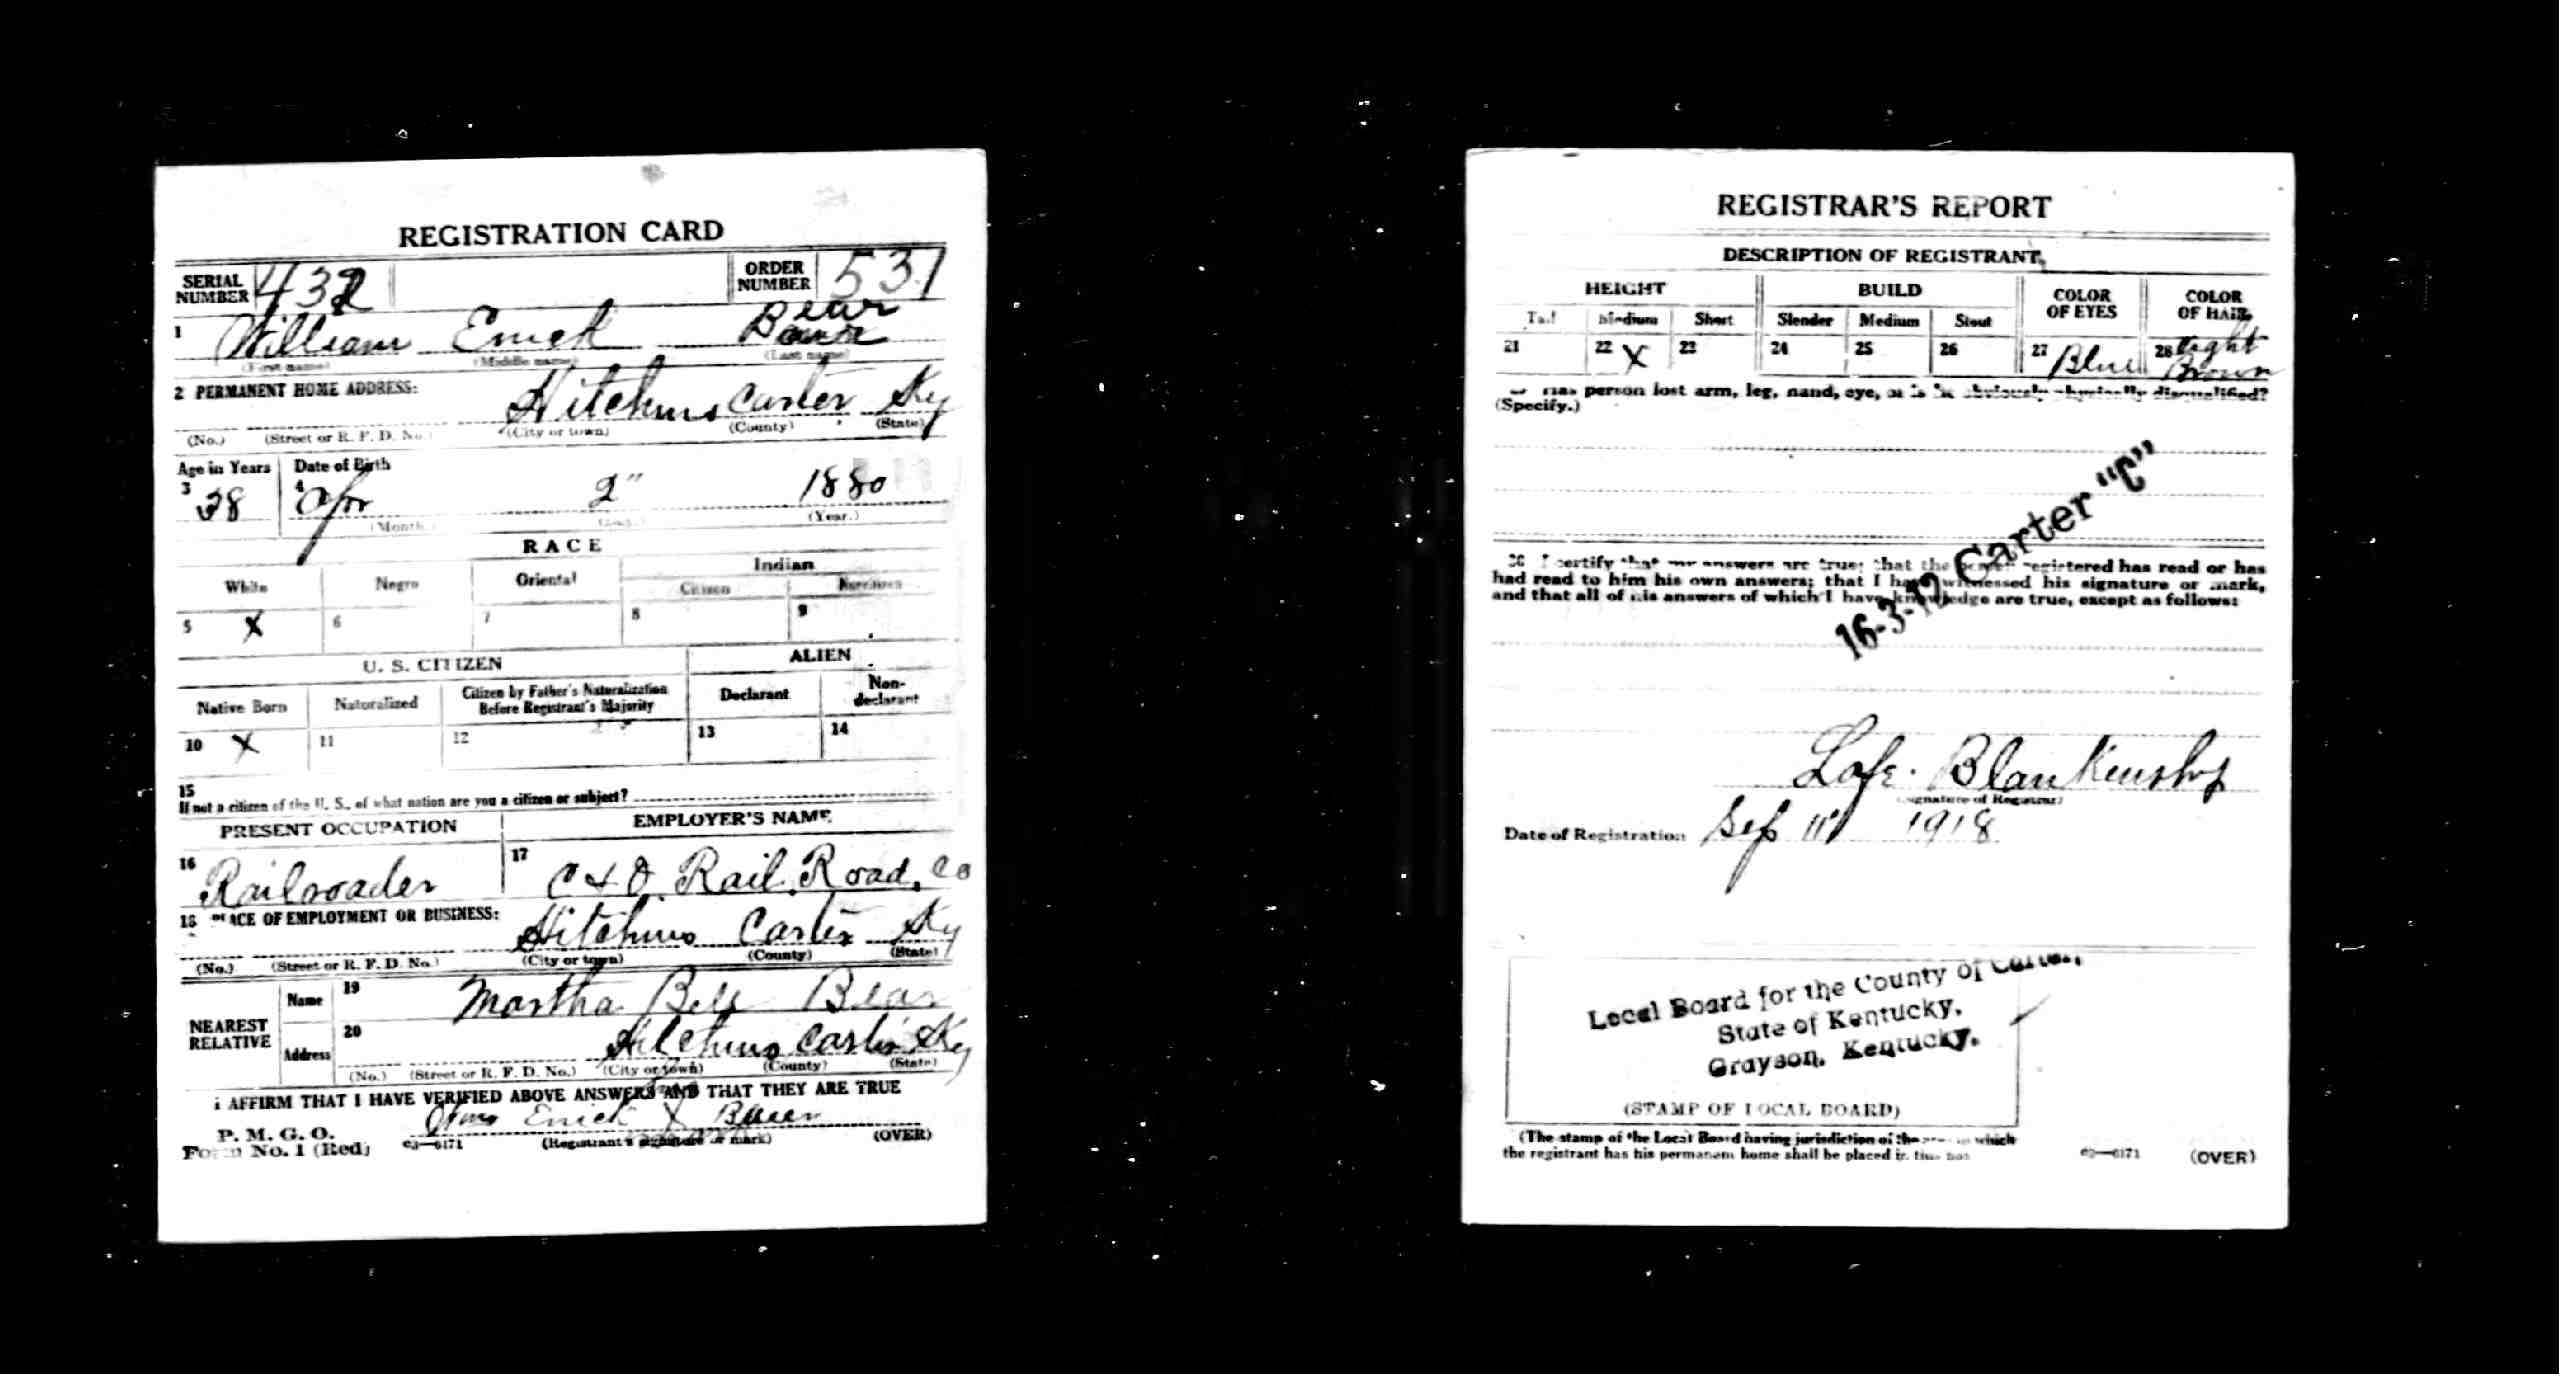 REGISTRATION CARD
SERIAL NUMBER 432 ORDER NUMBER 531
Bear
1 William Emick
(First name) (Middle name) (Last name)
2 PERMANENT HOME ADDRESS:
Hitchins Carter Ky
(No.) (Street or R. F. D. No.) (City or town) (County) (State)
Age in Years Date of Birth
3 38 4 Apr 2" 1880
(Month.) (Day.) (Year.)
RACE
White Negro Oriental Indian
Citizen Noncitizen
5 X 6 7 8 9
U. S. CITIZEN ALIEN
Native Born Naturalized Citizen by Father's Naturalization Before Registrant's Majority Declarant Non-declarant
10 X 11 12 13 14
15
If not a citizen of the U. S., of what nation are you a citizen or subject?
PRESENT OCCUPATION EMPLOYER'S NAME
16 Railroader 17 C & O Rail Road, Co
18 PLACE OF EMPLOYMENT OR BUSINESS:
Hitchins Carter Ky
(No.) (Street or R. F. D. No.) (City or town) (County) (State)
NEAREST RELATIVE
Name 19 Martha Bell Bear
Address 20 Hitchins Carter Ky
(No.) (Street or R. F. D. No.) (City or town) (County) (State)
I AFFIRM THAT I HAVE VERIFIED ABOVE ANSWERS AND THAT THEY ARE TRUE
Wm Emick X
P. M. G. O.
Form No. 1 (Red) 03—6171 (Registrant's signature or mark) (OVER)
REGISTRAR'S REPORT
DESCRIPTION OF REGISTRANT
HEIGHT BUILD COLOR OF EYES COLOR OF HAIR
Tall Medium Short Slender Medium Stout
21 22 X 23 24 25 26 27 Blue 28 Light Brown
Has person lost arm, leg, hand, eye, or is he obviously physically disqualified?
(Specify.)
16-3-12 Carter "C"
30 I certify that my answers are true; that the person registered has read or has
had read to him his own answers; that I have witnessed his signature or mark,
and that all of his answers of which I have knowledge are true, except as follows:
Lafe. Blankenship
(Signature of Registrar)
Date of Registration Sep 11 1918
Local Board for the County of Carter,
State of Kentucky,
Grayson, Kentucky.
(STAMP OF LOCAL BOARD)
(The stamp of the Local Board having jurisdiction of the area in which
the registrant has his permanent home shall be placed in this box
03—6171 (OVER)